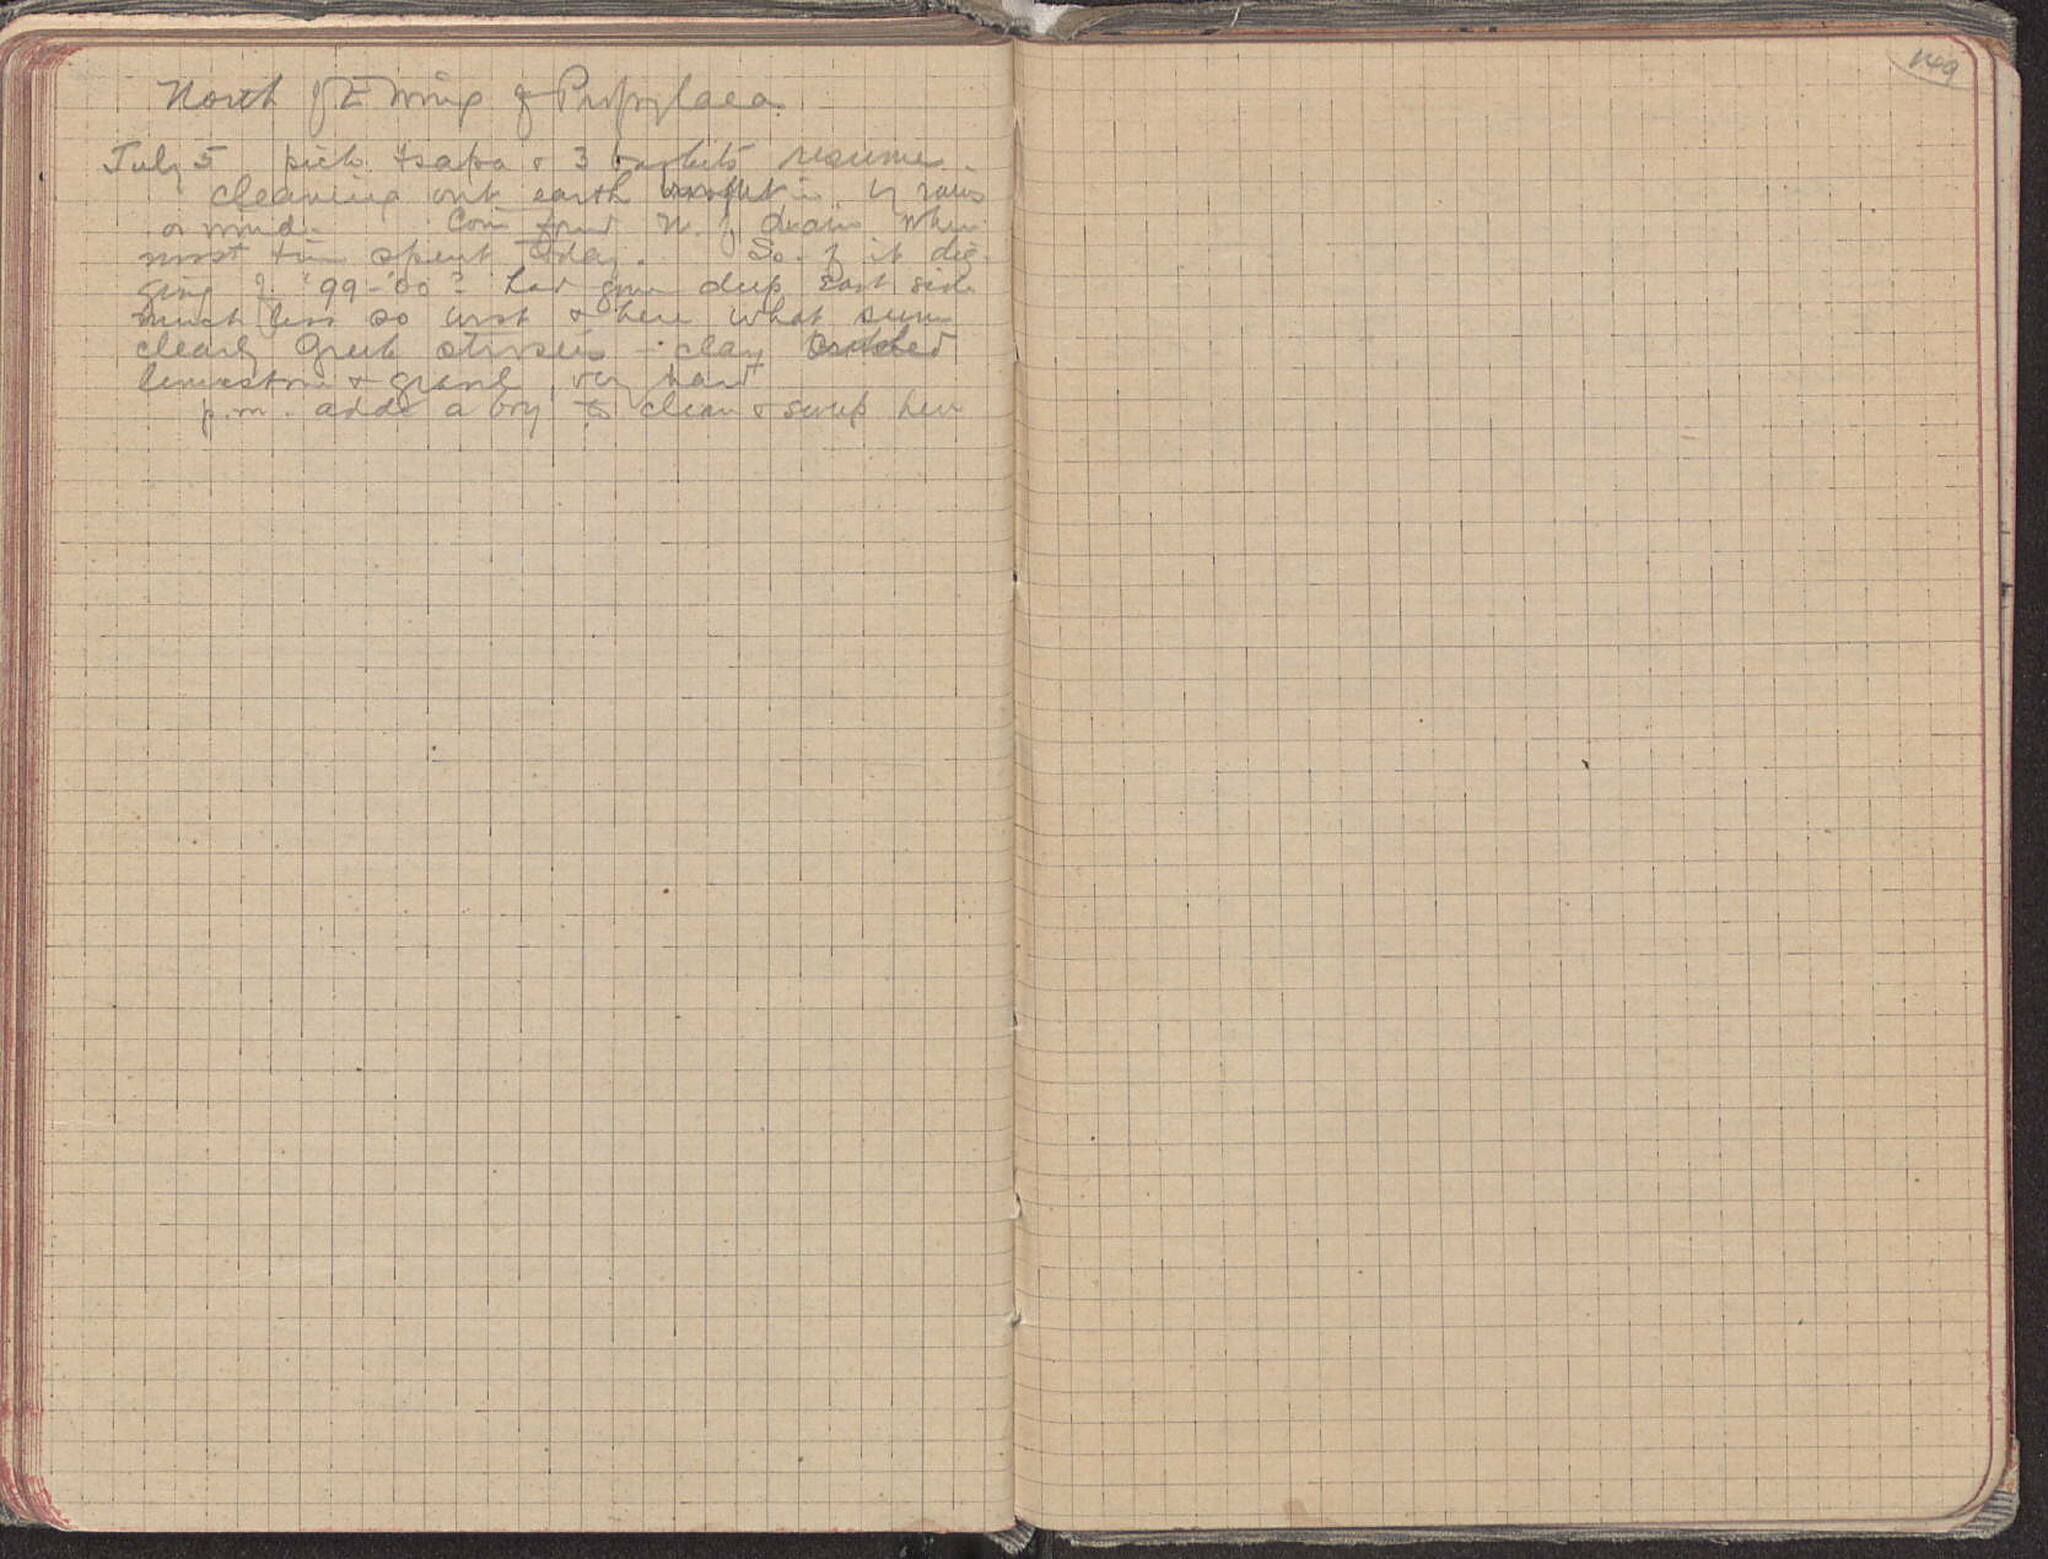 North of E wing of Propylaea.
July 5 pick tsapa & 3 baskets resume
cleaning out earth brought in by rains
or wind. Coin found N. of drain where
most time spent today. So. of it dig-
ging of '99-'00? had gone deep East side
much less so west & here what seems
clearly Greek strosis - clay crushed
limestone & gravel, very hard
p.m. adds a boy to clean & sweep here
149